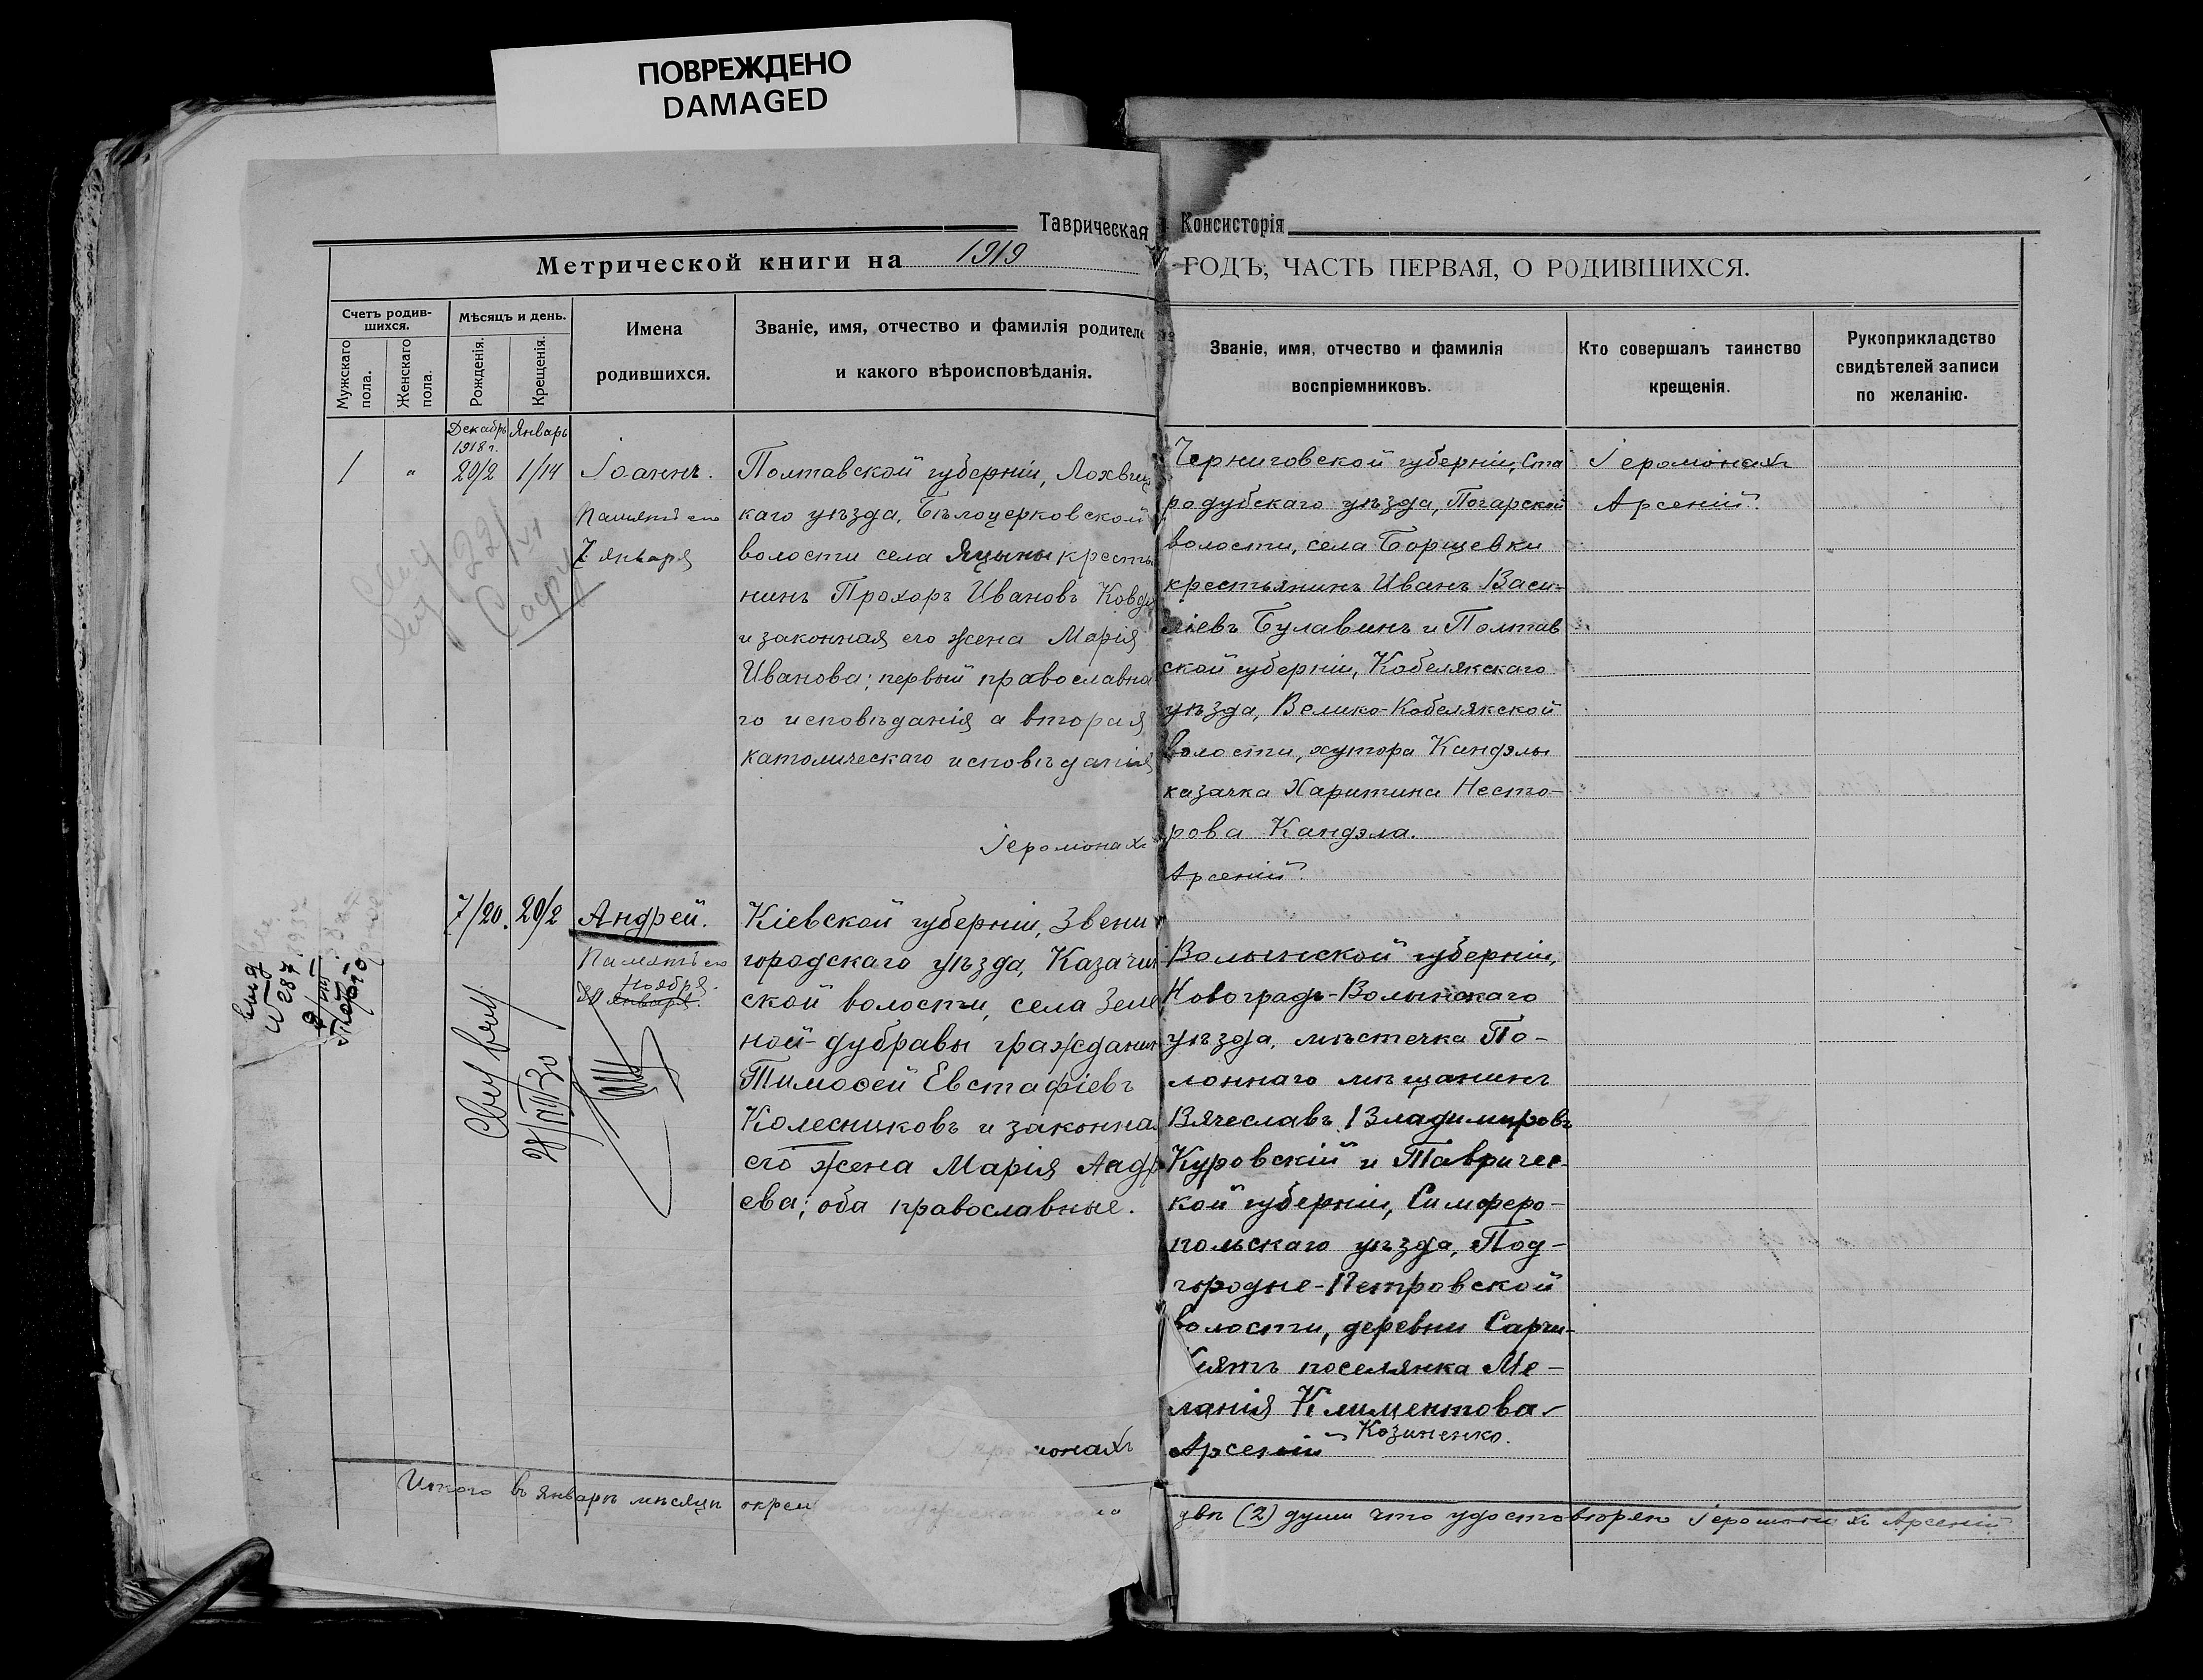 ПОВРЕЖДЕНО
DAMAGED
Таврическая Консисторія
Метрической книги на 1919 ГОДЪ, ЧАСТЬ ПЕРВАЯ, О РОДИВШИХСЯ.
Счетъ родив-
шихся.
Мужскаго
пола.
Женскаго
пола.
Мѣсяцъ и день.
Рожденія.
Крещенія.
Имена
родившихся.
Званіе, имя, отчество и фамилія родителе
и какого вѣроисповѣданія.
Званіе, имя, отчество и фамилія
воспріемниковъ.
Кто совершалъ таинство
крещенія.
Рукоприкладство
свидѣтелей записи
по желанію.
Декабрь
1918 г.
Январь
1
"
20/2
1/14
Іоаннъ.
Память его
7 января
Полтавской губерніи, Лохвиц
каго уѣзда, Бѣлоцерковской
волости села Яцыны крестья
нинъ Прохоръ Ивановъ
и законная его жена Марія
Иванова; первый православна
го исповѣданія а вторая
католическаго исповѣданія
Іеромонахъ
Черниговской губерніи, Ста
родубскаго уѣзда, Погарской
волости, села Борщевки
крестьянинъ Иванъ Васи-
ліевъ Булавинъ и Полтав
ской губерніи, Кобелякскаго
уѣзда, Велико-Кобелякской
волости, хутора Кандэлы
казачка Харитина Несто-
рова Кандэла.
Арсеній
Іеромонахъ
Арсеній.
7/20.
20/2
Андрей.
Память его
Ноября.
30 января.
Свид выд
28/VIII 30
Кіевской губерніи, Звени
городскаго уѣзда, Казачин
ской волости, села Зеле
ной-дубравы гражданин
Тимоѳей Евстафіевъ
Колесниковъ и законна
его жена Марія Андр
ева; оба православные.
Волынской губерніи,
Новоградъ-Волынскаго
уѣзда, мѣстечка По-
лоннаго мѣщанинъ
Вячеславъ Владимировъ
Куровскій и Тавричес-
кой губерніи, Симферо-
польскаго уѣзда, Под-
городне-Петровской
волости, деревни Сарчи-
Кіятъ поселянка Ме-
ланія Климентова
Козиненко.
Арсеній
Итого въ январѣ мѣсяцѣ
двѣ (2) души что удостовѣряю Іеромонахъ Арсеній